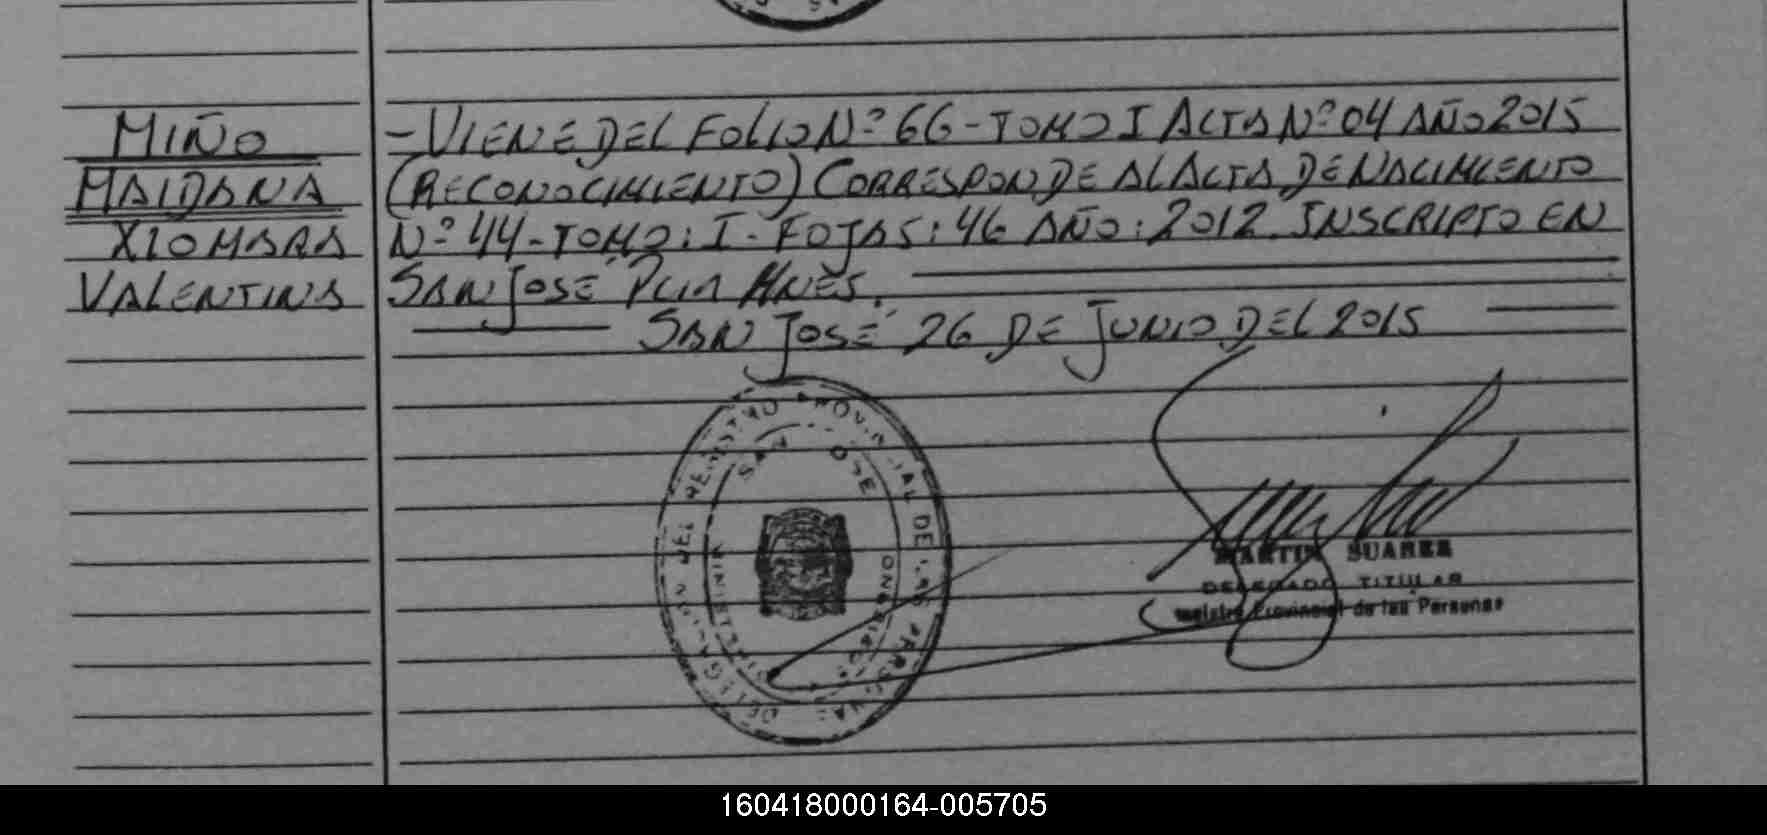 MIÑO
MAIDANA
XIOMARA
VALENTINA
- VIENE DEL FOLIO Nº 66 - TOMO I ACTA Nº 04 AÑO 2015
(RECONOCIMIENTO) CORRESPONDE AL ACTA DE NACIMIENTO
Nº 44 - TOMO: I - FOJAS: 46 AÑO: 2012. INSCRIPTO EN
SAN JOSÉ
SAN JOSÉ 26 DE JUNIO DEL 2015
DELEGACION DEL REGISTRO PROVINCIAL DE LAS PERSONAS
SAN JOSE
MISIONES
MARTIN SUAREZ
DELEGADO TITULAR
Registro Provincial de las Personas
160418000164-005705